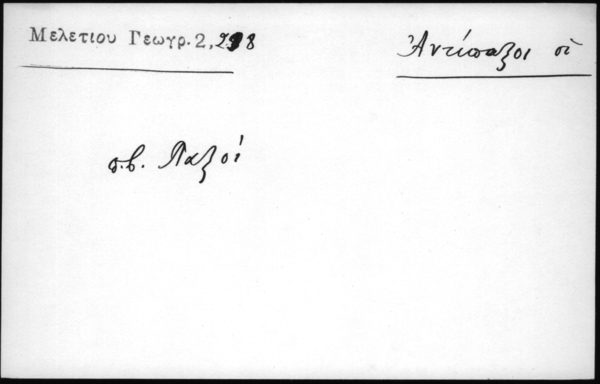 Μελετιου Γεωγρ. 2, 298
Ἀντίπαξοι οἱ
π.β. Παξοί